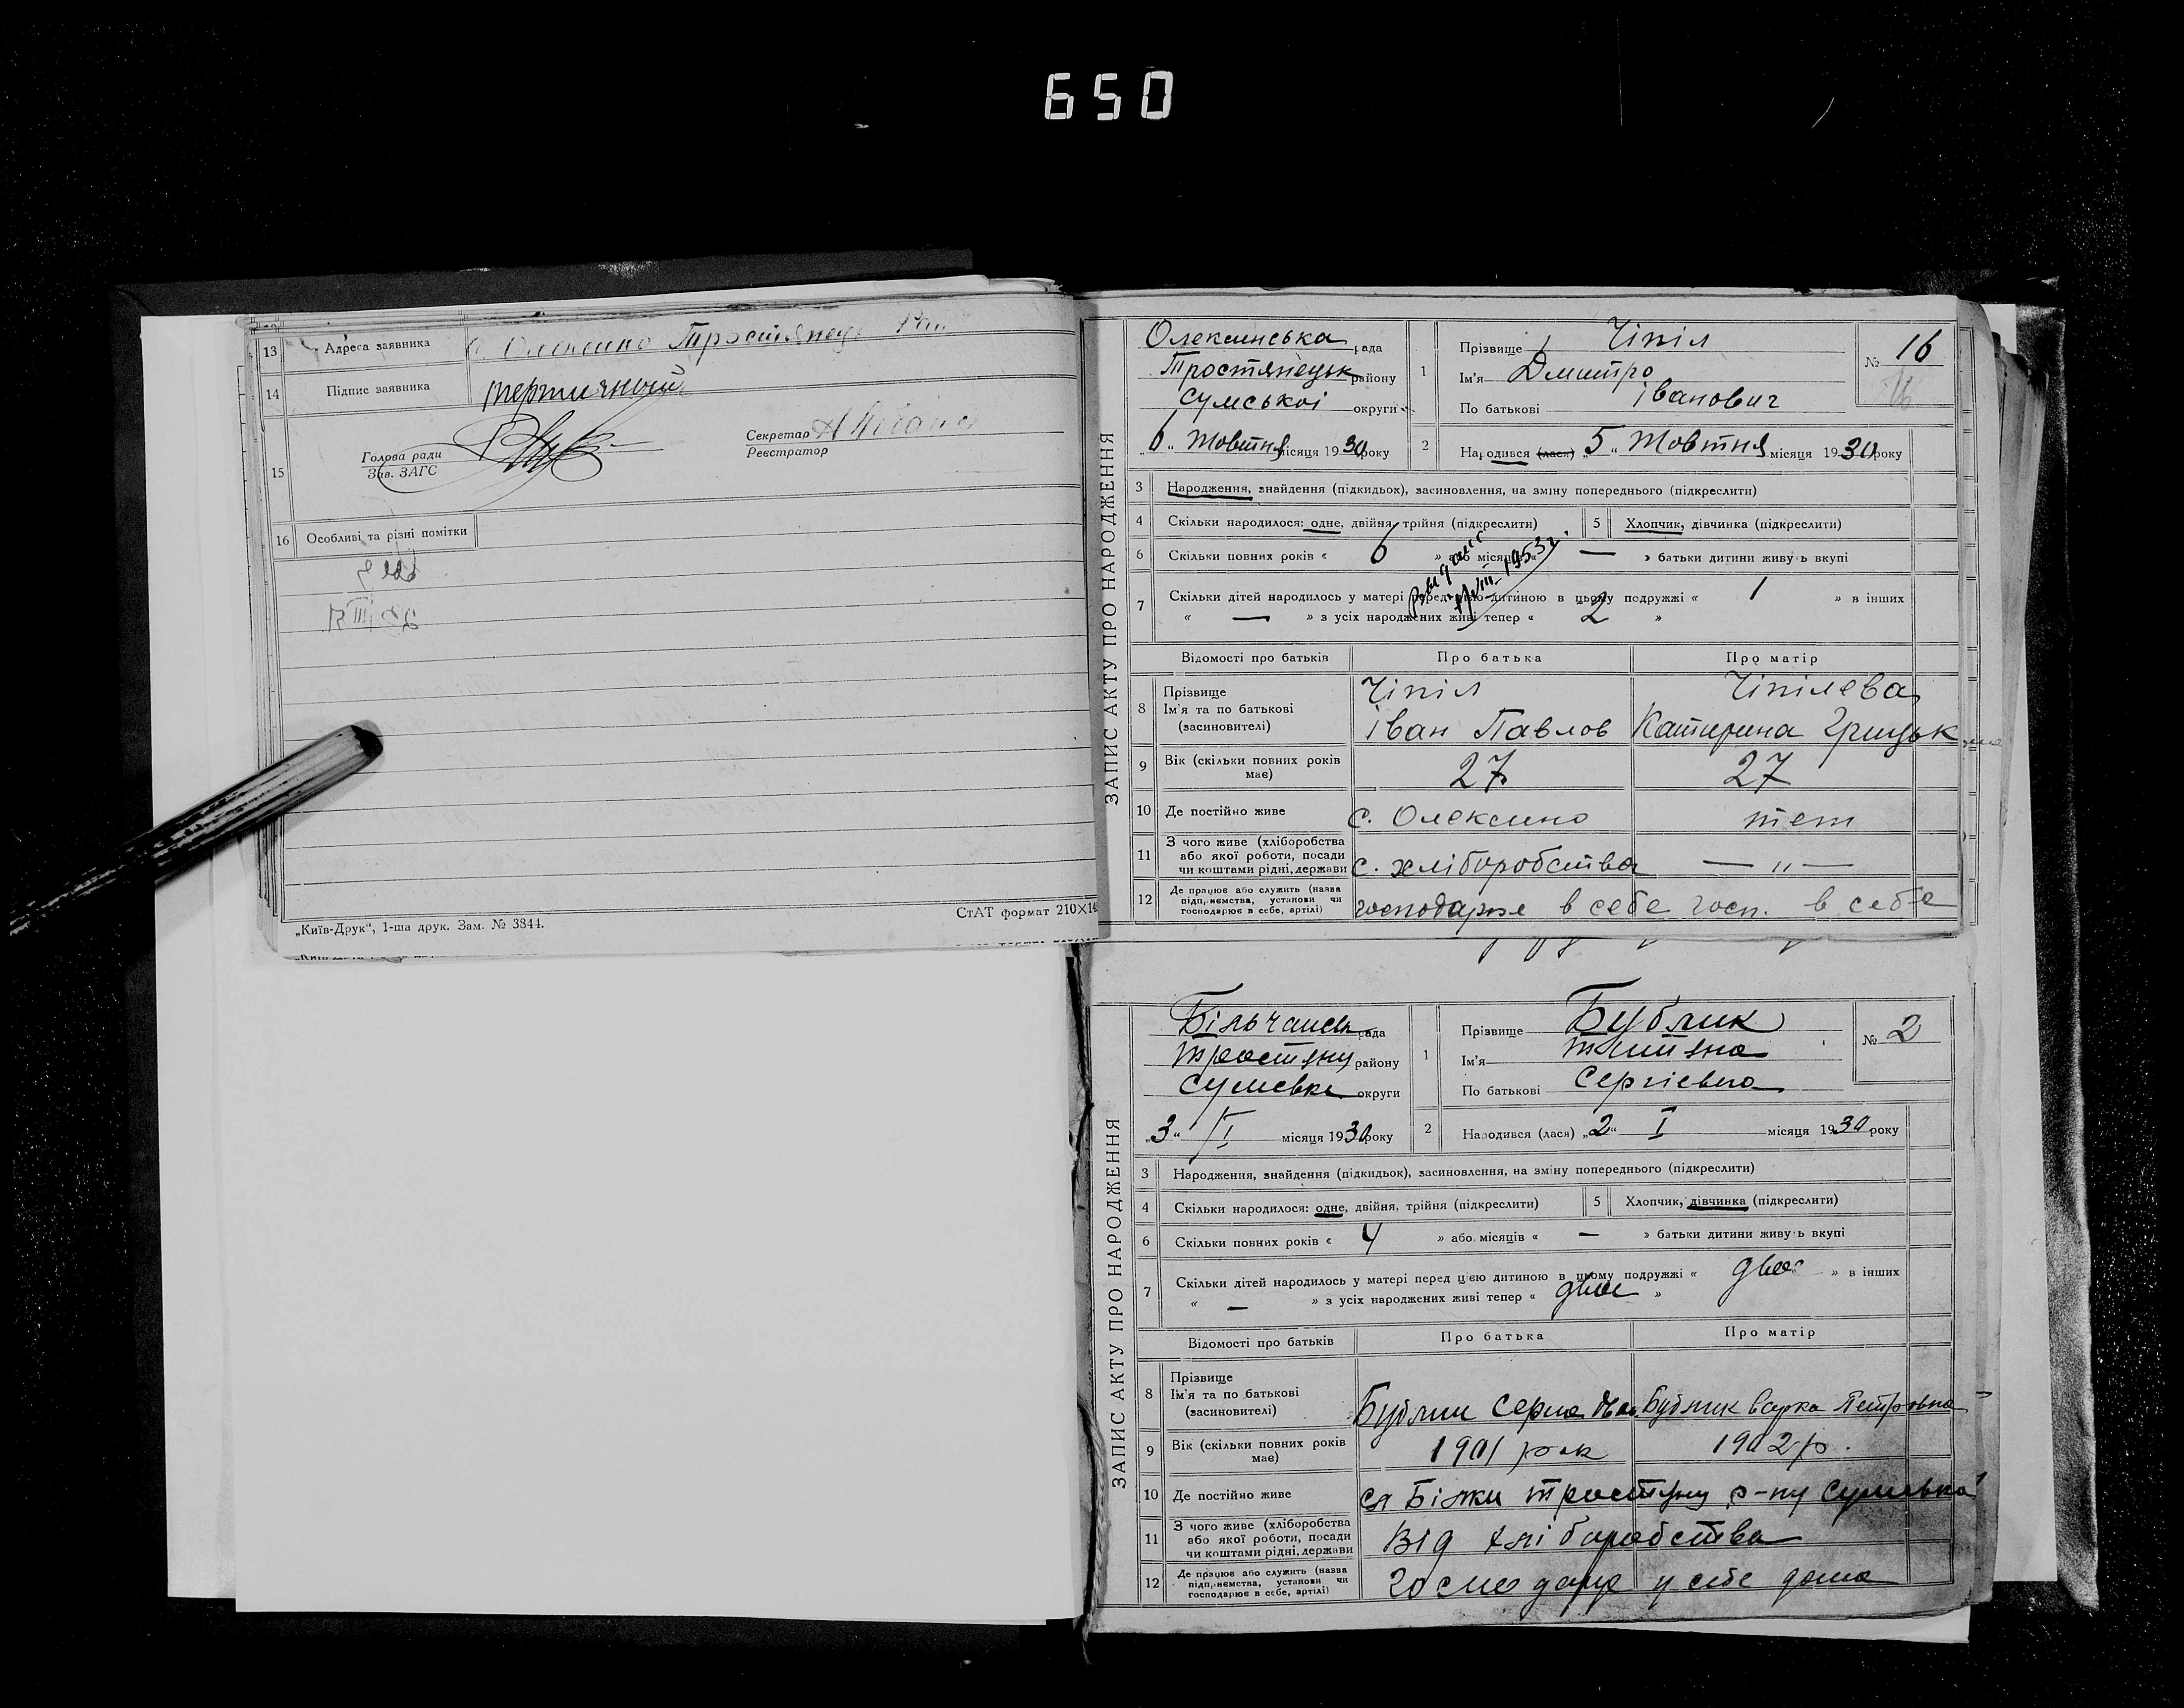 650
13 Адреса заявника с. Олексино Тростянець
14 Підпис заявника
15 Голова ради
Зав. ЗАГС
Секретар
Реєстратор
16 Особливі та різні помітки
„Київ-Друк“, 1-ша друк. Зам. № 3844.
СтАТ формат 210×14
ЗАПИС АКТУ ПРО НАРОДЖЕННЯ
Олексинська рада
Тростянецьк району
Сумської округи
„6“ Жовтня місяця 1930 року
1 Прізвище Чіпіл
Ім'я Дмитро
По батькові Іванович
№ 16
2 Народився (лася) „5“ Жовтня місяця 1930 року
3 Народження, знайдення (підкидьок), засиновлення, на зміну попереднього (підкреслити)
4 Скільки народилося: одне, двійня, трійня (підкреслити)
5 Хлопчик, дівчинка (підкреслити)
6 Скільки повних років « 6 » або місяців « — » батьки дитини живуть вкупі
7 Скільки дітей народилось у матері перед цією дитиною в цьому подружжі « 1 » в інших
« — » з усіх народжених живі тепер « 2 »
1953 г.
Відомості про батьків Про батька Про матір
8 Прізвище Чіпіл Чіпілева
Ім'я та по батькові
(засиновителі) Іван Павлов Катирина Грицьк
9 Вік (скільки повних років має) 27 27
10 Де постійно живе с. Олексино теж
11 З чого живе (хліборобства
або якої роботи, посади
чи коштами рідні, держави с. хліборобства — „ —
12 Де працює або служить (назва
підприємства, установи чи
господарює в себе, артілі) господарює в себе госп. в себе
ЗАПИС АКТУ ПРО НАРОДЖЕННЯ
Більчанськ рада
Тростянц району
Сумська округи
„3“ I місяця 1930 року
1 Прізвище Бублик
Ім'я
По батькові Сергіевна
№ 2
2 Народився (лася) „2“ I місяця 1930 року
3 Народження, знайдення (підкидьок), засиновлення, на зміну попереднього (підкреслити)
4 Скільки народилося: одне, двійня, трійня (підкреслити)
5 Хлопчик, дівчинка (підкреслити)
6 Скільки повних років « 4 » або місяців « — » батьки дитини живуть вкупі
7 Скільки дітей народилось у матері перед цією дитиною в цьому подружжі « двое » в інших
« — » з усіх народжених живі тепер « двое »
Відомості про батьків Про батька Про матір
8 Прізвище
Ім'я та по батькові
(засиновителі) Бублик Бублик Варка Петровна
9 Вік (скільки повних років має) 1901 рок 1902 р.
10 Де постійно живе Білки Тростянц р-ну Сумська
11 З чого живе (хліборобства
або якої роботи, посади
чи коштами рідні, держави Від хліборобства
12 Де працює або служить (назва
підприємства, установи чи
господарює в себе, артілі) у себе дома